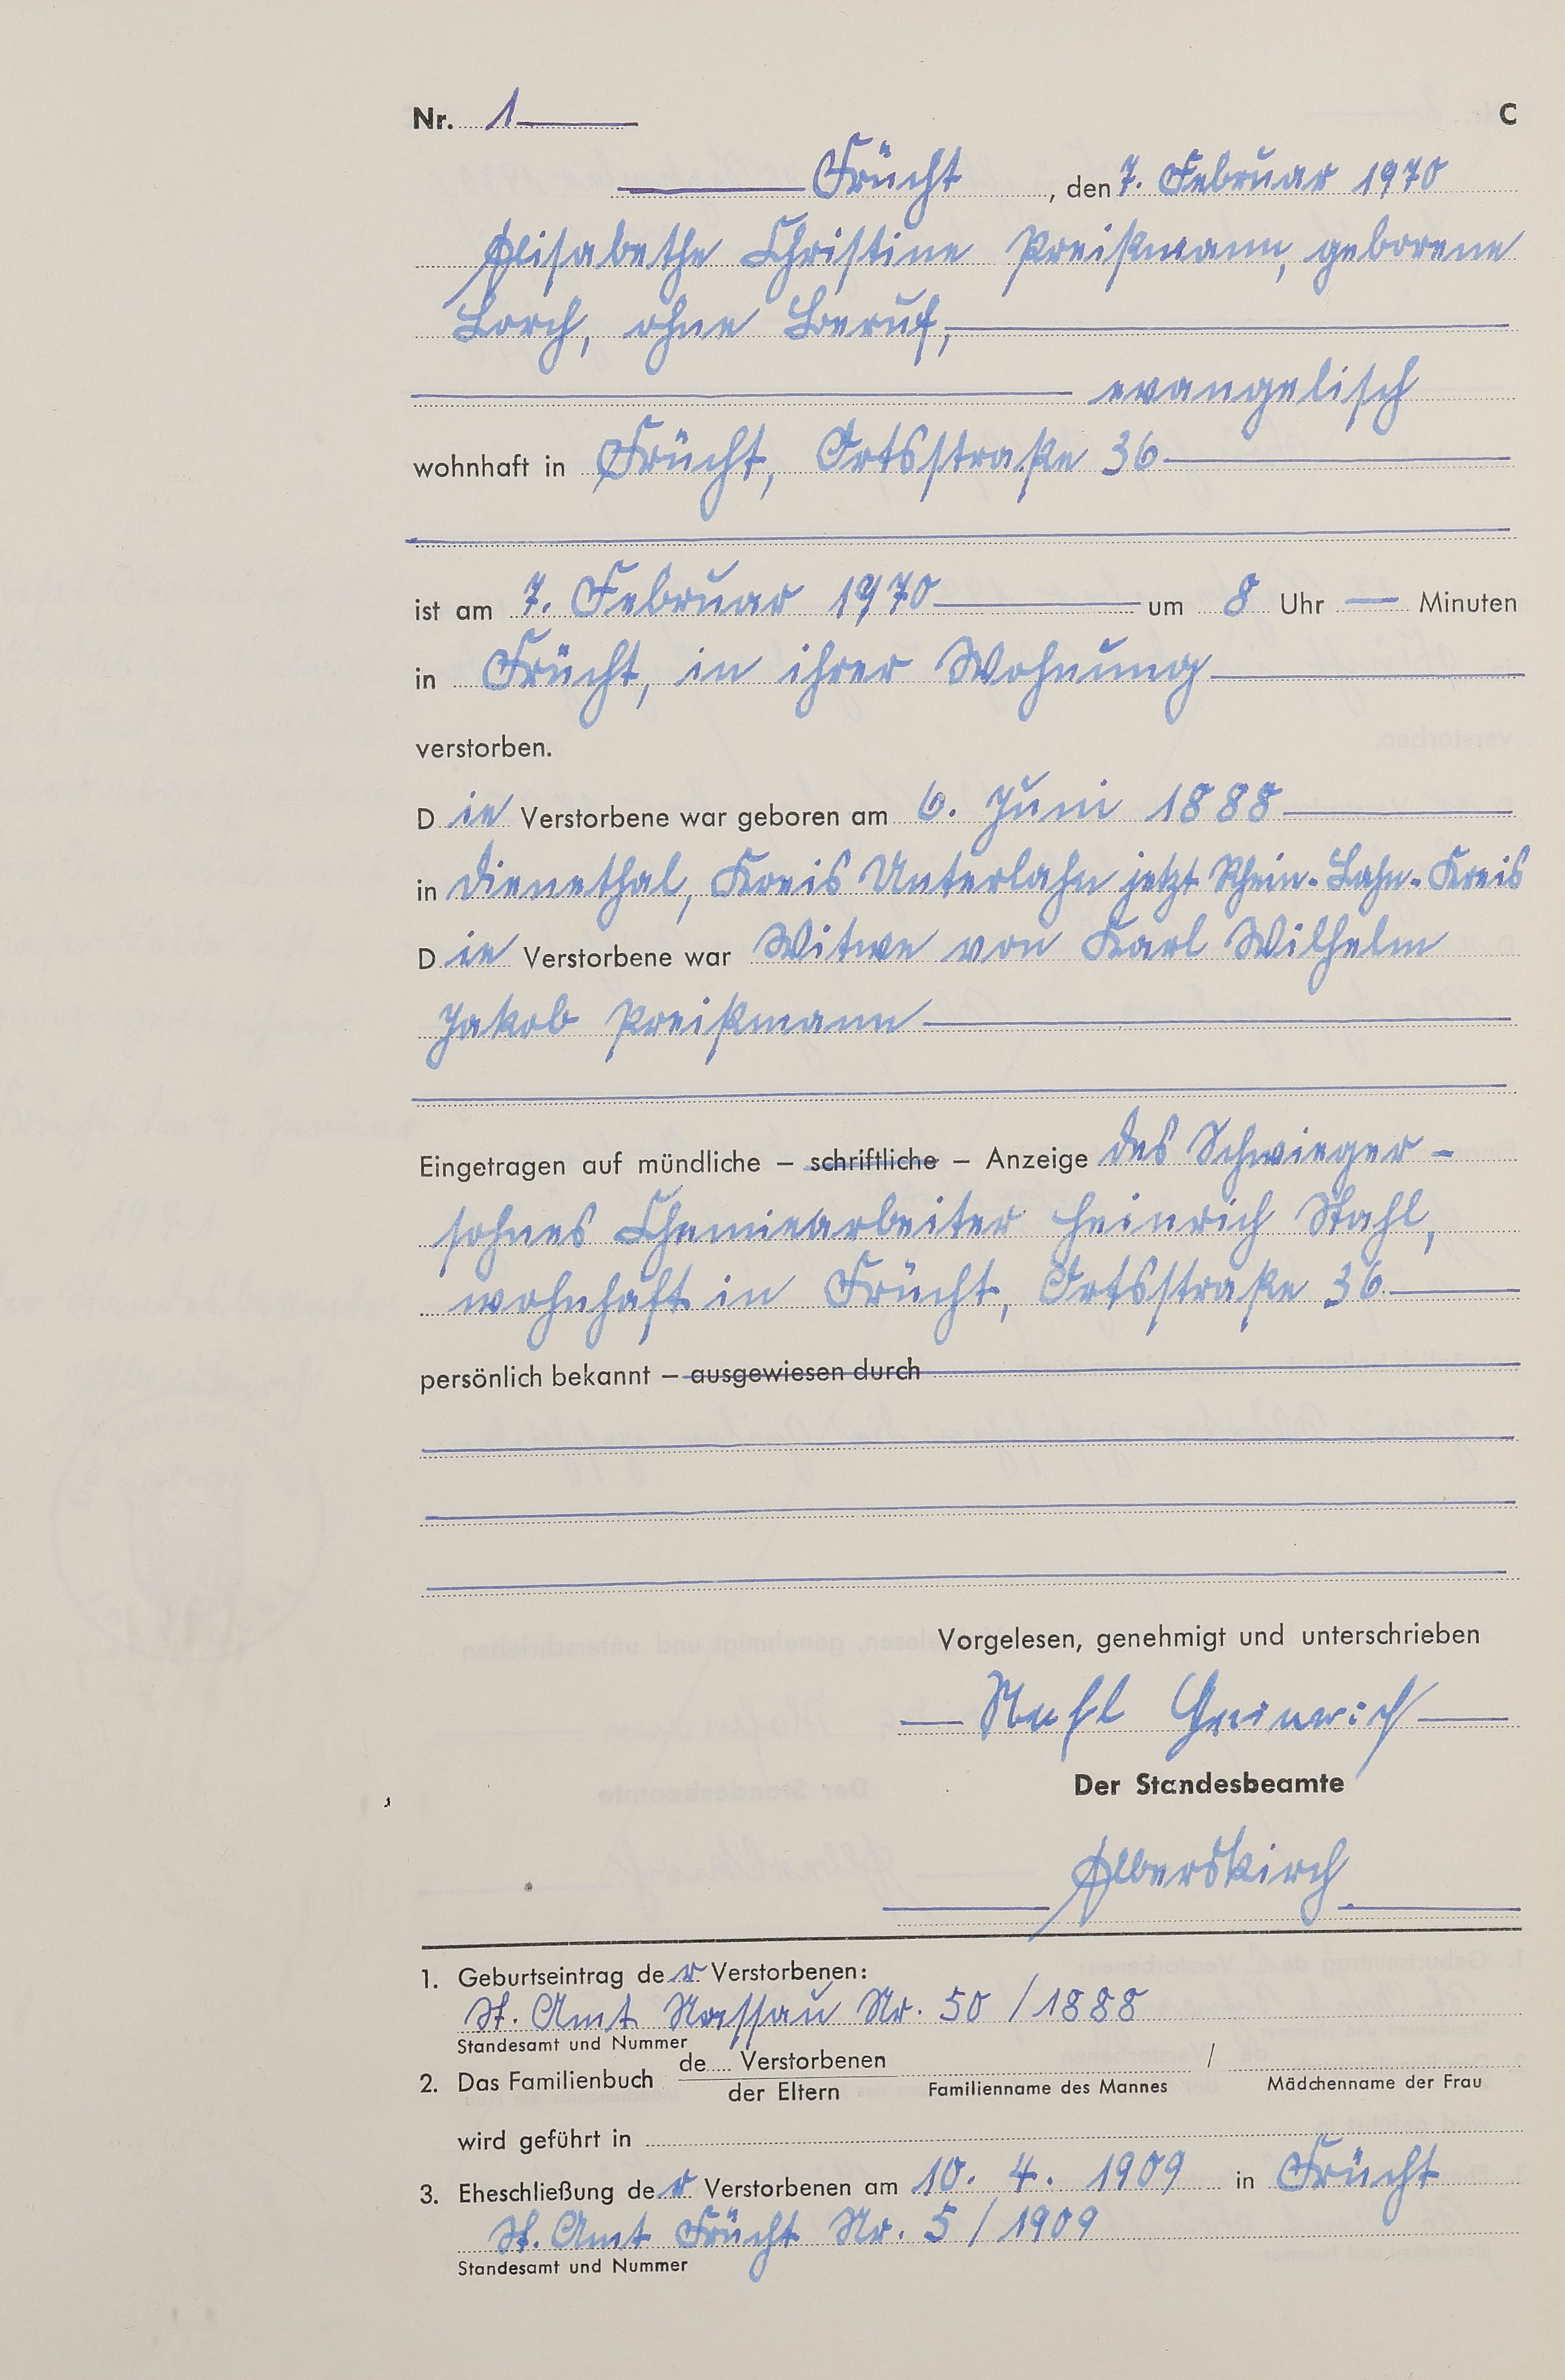 Nr. 1 C
Frücht, den 7. Februar 1970
Elisabethe Christine Preißmann, geborene
Lorch, ohne Beruf,
evangelisch
wohnhaft in Frücht, Ortsstraße 36
ist am 7. Februar 1970 um 8 Uhr — Minuten
in Frücht, in ihrer Wohnung
verstorben.
Die Verstorbene war geboren am 6. Juni 1888
in Dienethal, Kreis Unterlahn jetzt Rhein-Lahn-Kreis
Die Verstorbene war Witwe von Karl Wilhelm
Jakob Preißmann
Eingetragen auf mündliche – schriftliche – Anzeige des Schwieger-
sohnes Chemiearbeiter Heinrich Stahl,
wohnhaft in Frücht, Ortsstraße 36
persönlich bekannt – ausgewiesen durch
Vorgelesen, genehmigt und unterschrieben
Stahl Heinrich
Der Standesbeamte
1. Geburtseintrag der Verstorbenen:
St. Amt Nassau Nr. 50 / 1888
Standesamt und Nummer
2. Das Familienbuch de Verstorbenen /
der Eltern Familienname des Mannes Mädchenname der Frau
wird geführt in
3. Eheschließung der Verstorbenen am 10. 4. 1909 in Frücht
St. Amt Frücht Nr. 5 / 1909
Standesamt und Nummer